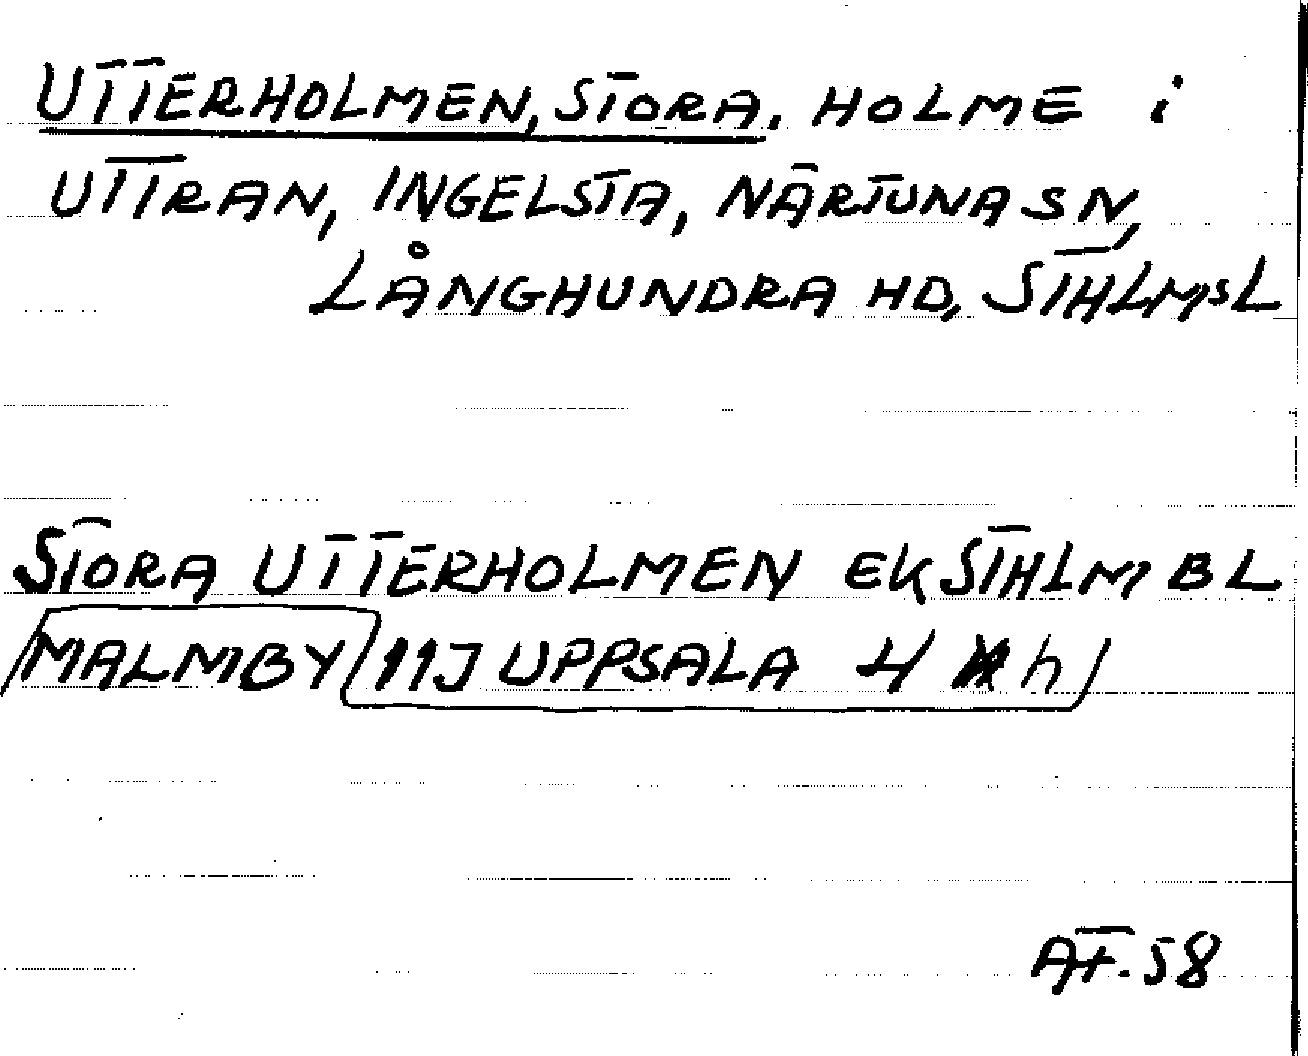 UTTERHOLMEN, STORA, HOLME i
UTTRAN, INGELSTA, NÄRTUNA SN,
LÅNGHUNDRA HD, STHLMSL
STORA UTTERHOLMEN EK STHLM BL
MALMBY 11J UPPSALA 4 h
AF. 58